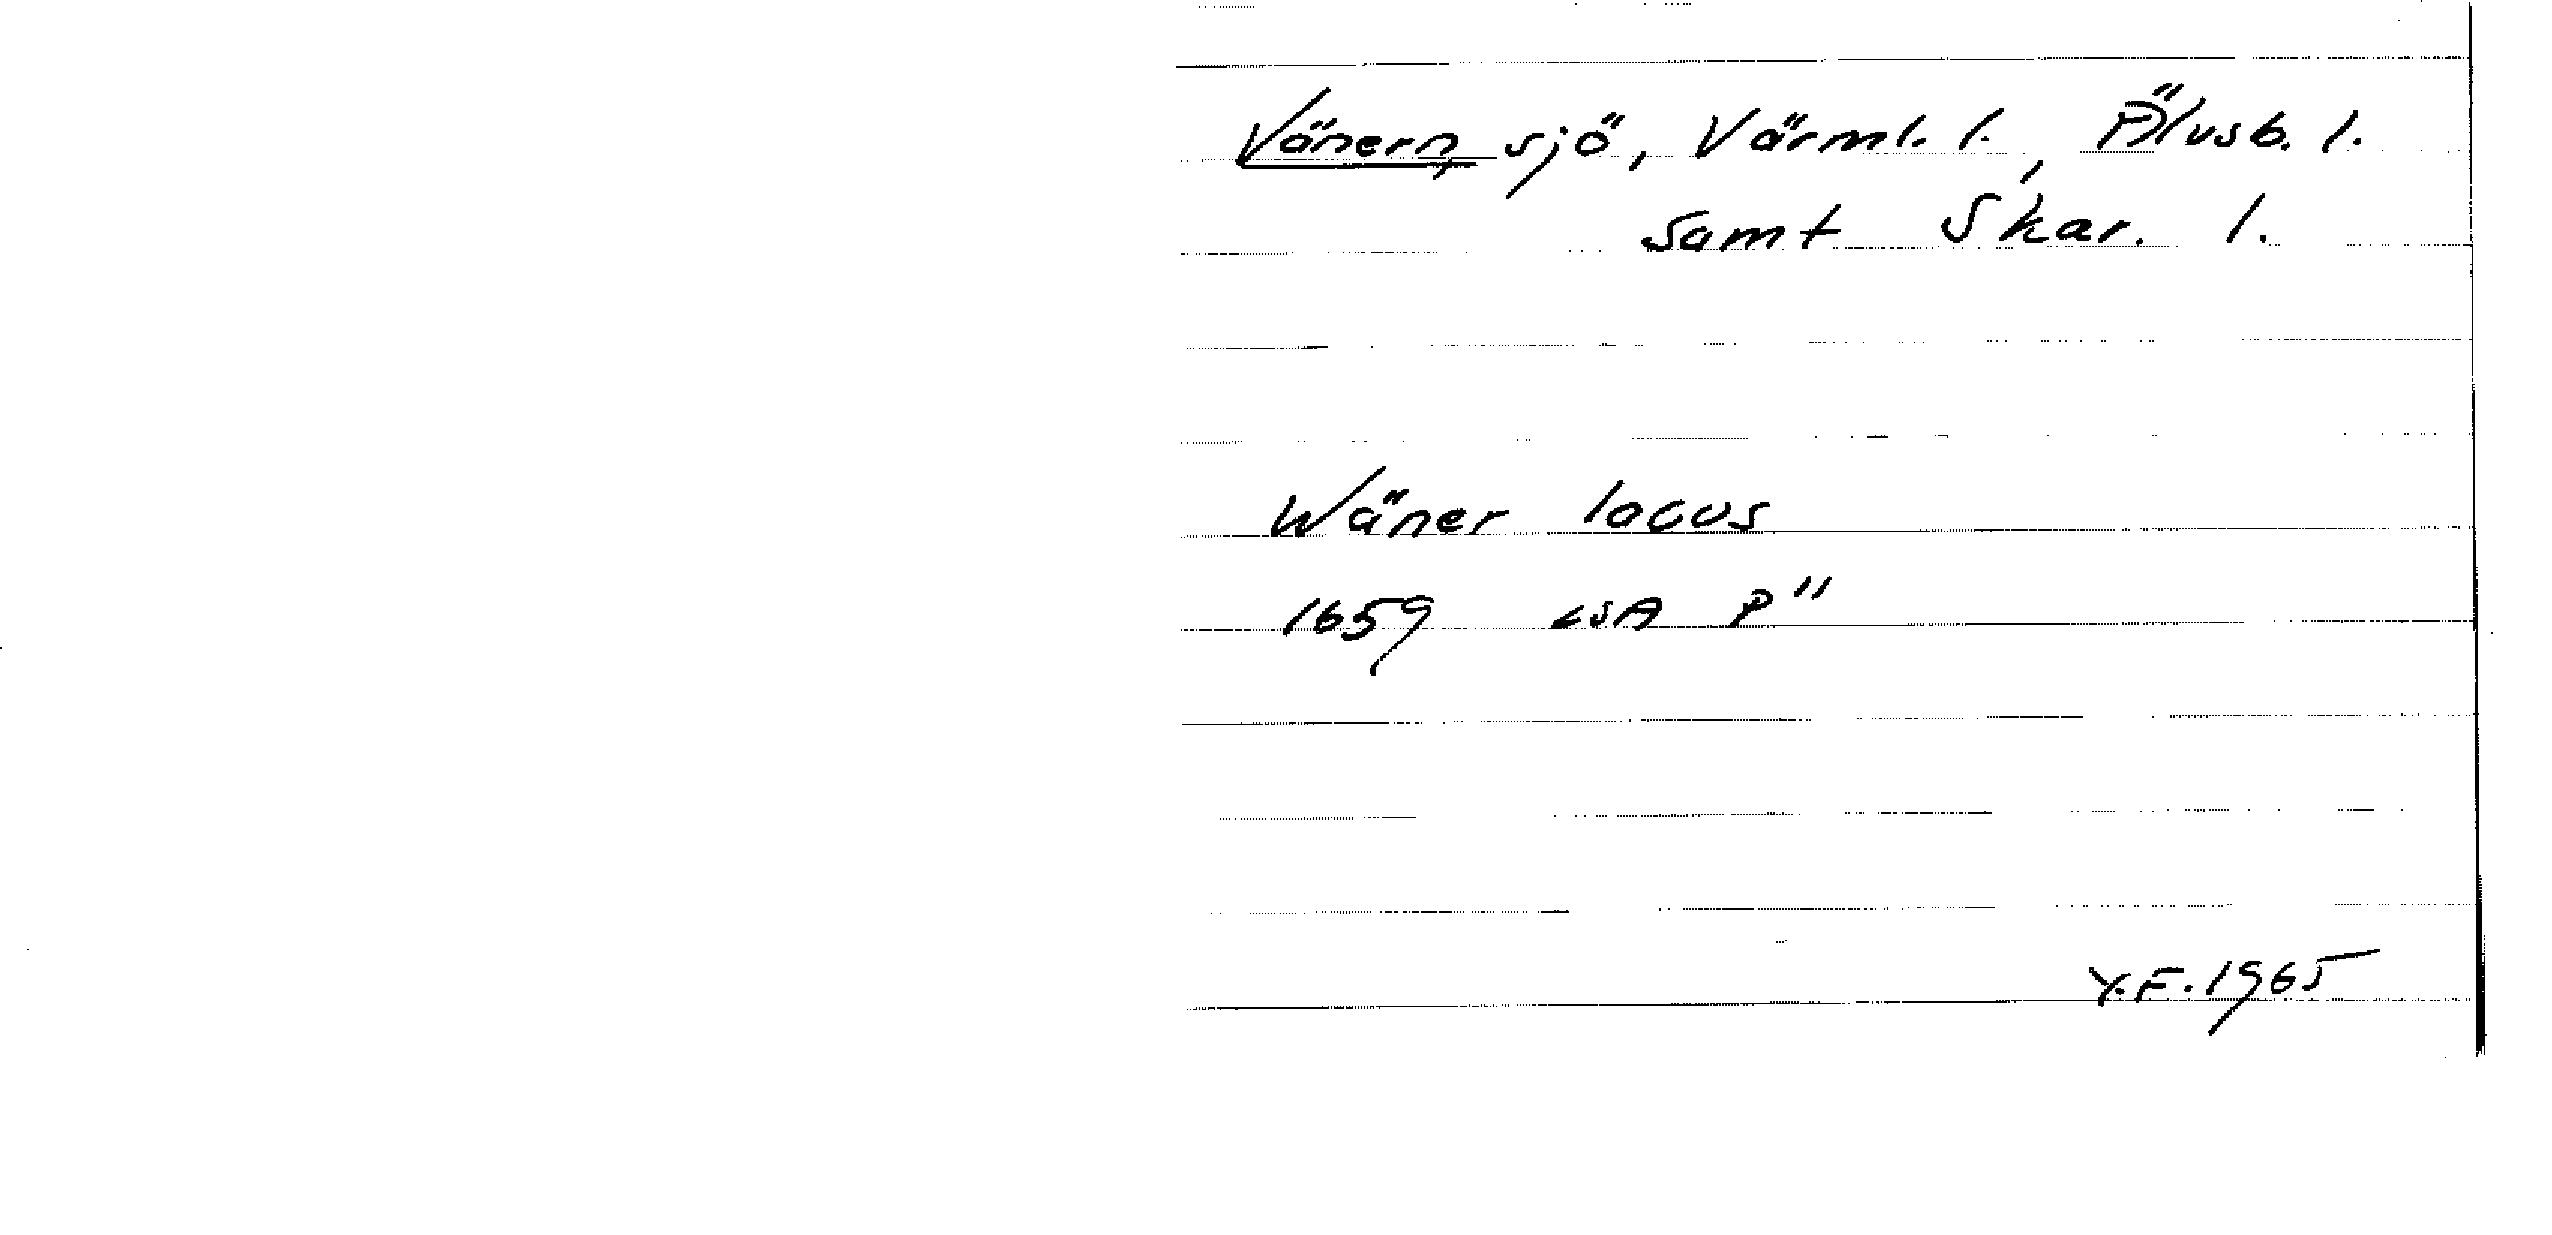 Vänern, sjö, Värml. l., Älvsb. l.
samt Skar. l.
Wäner lacus
1659 LSA P"
Y.F. 1965